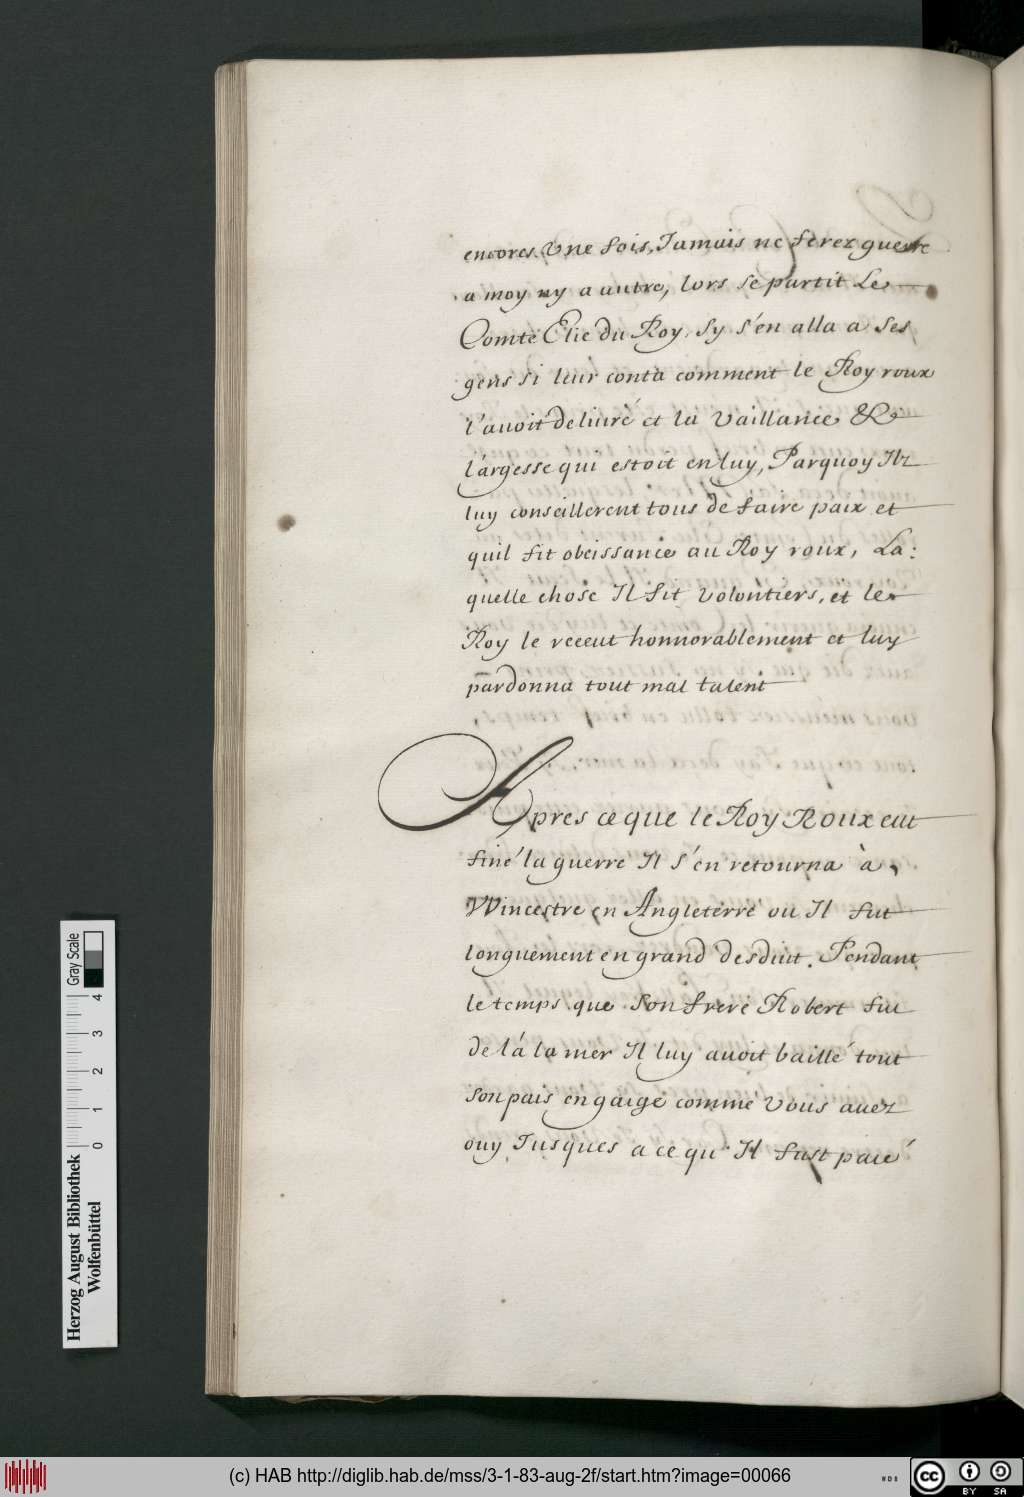 encores Une fois, Jamais ne ferez guerre
a moy ny a autre, lors se partit Le
Comte Elie du Roy, sy s'en alla a ses
gens si leur conta comment le Roy roux
l'auoit deliuré et la Vaillance &
largesse qui estoit en luy, Parquoy Ilz
luy conseillerent tous de faire paix et
quil fit obeissance au Roy roux, La:
quelle chose Il fit volontiers, et le
Roy le receut honnorablement et luy
pardonna tout mal talent
Apres ce que le Roy Roux eut
finé la guerre Il s'en retourna à
Wincestre en Angleterre ou Il fut
longuement en grand desduit. Pendant
le temps que son frere Robert fut
de lá la mer Il luy auoit baillé tout
son pais en gaige comme Vous auez
ouy Jusques a ce qu'Il fust paié
Herzog August Bibliothek
Wolfenbüttel
0 1 2 3 4
Gray Scale
(c) HAB http://diglib.hab.de/mss/3-1-83-aug-2f/start.htm?image=00066
WDB
cc BY SA